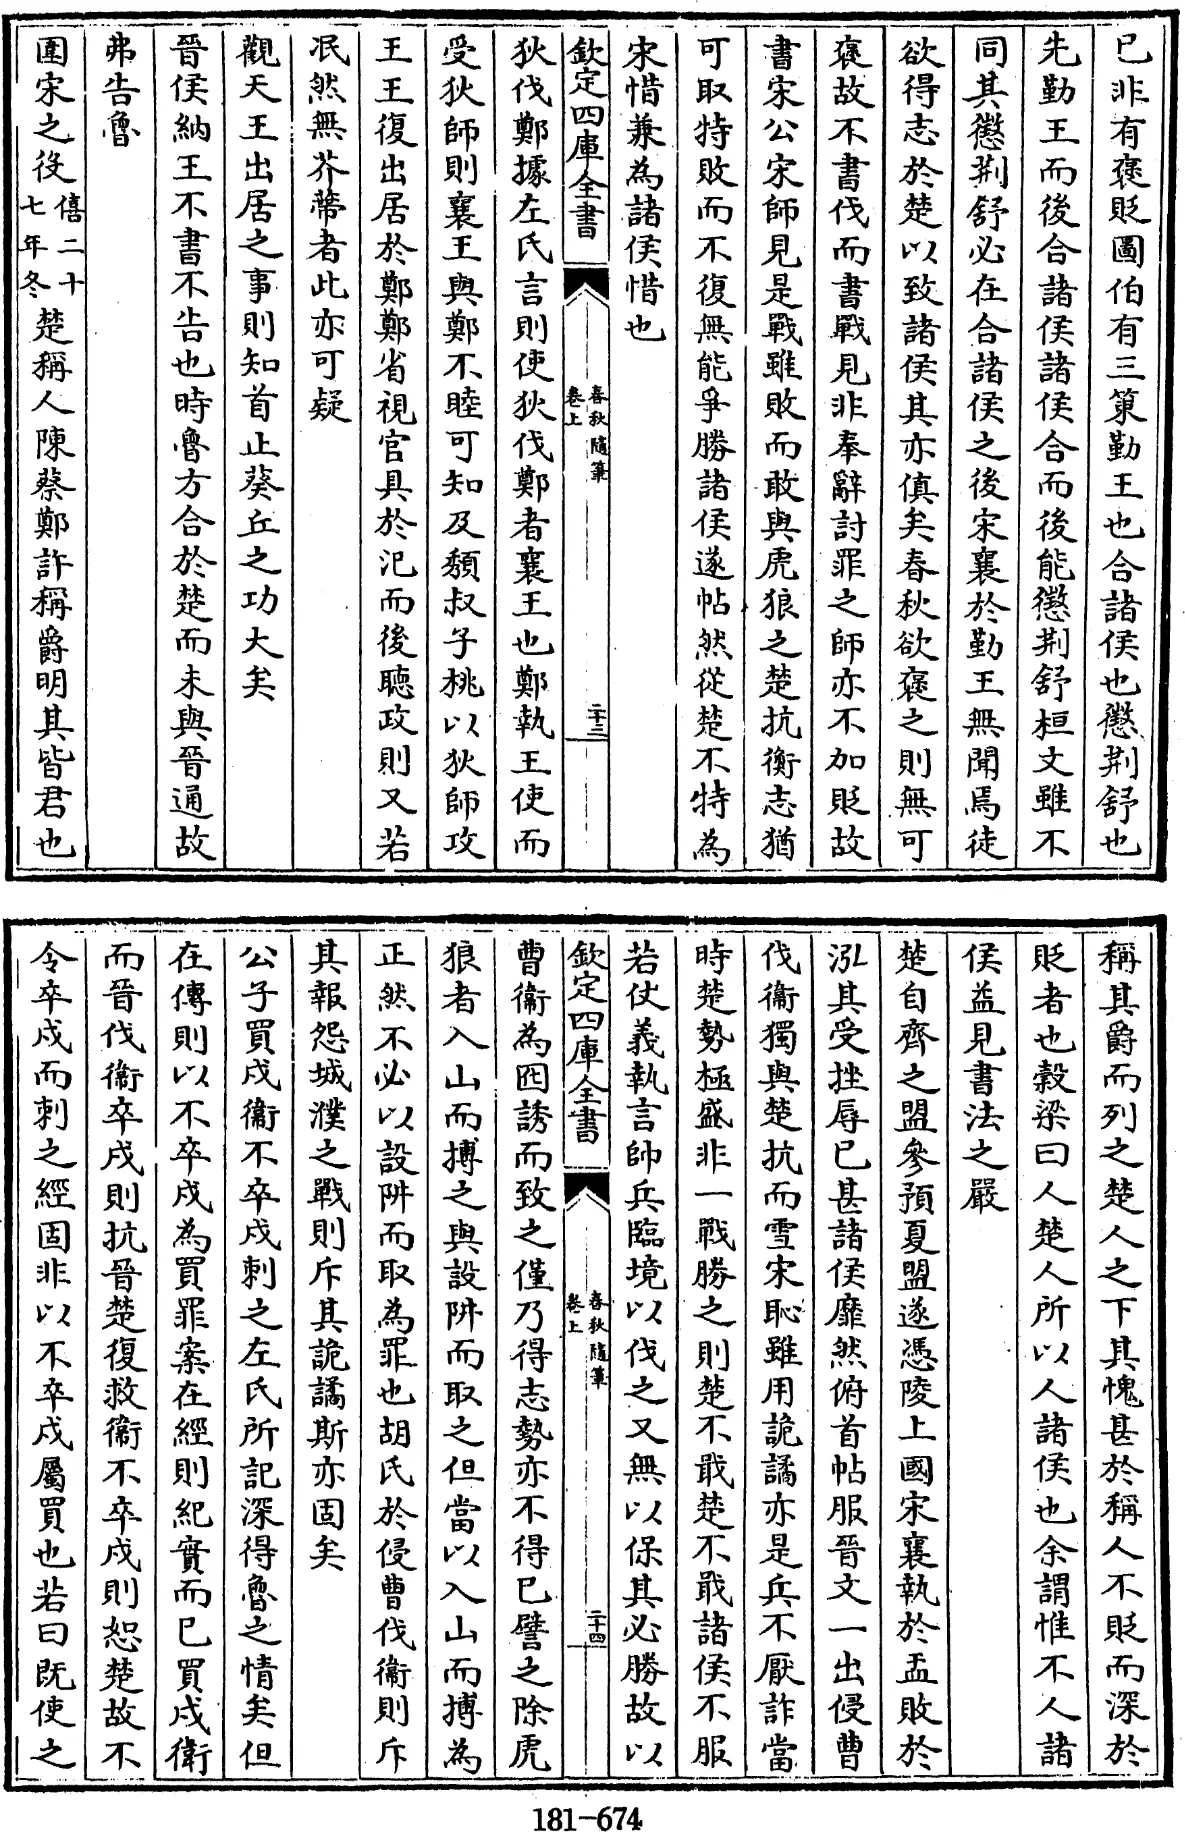 已非有褒貶圖伯有三策勤王也合諸侯也懲荆舒也
先勤王而後合諸侯諸侯合而後能懲荆舒桓文雖不
同其懲荆舒必在合諸侯之後宋襄於勤王無聞焉徒
欲得志於楚以致諸侯其亦傎矣春秋欲褒之則無可
褒故不書伐而書戰見非奉辭討罪之師亦不加貶故
書宋公宋師見是戰雖敗而敢與虎狼之楚抗衡志猶
可取特敗而不復無能爭勝諸侯遂帖然從楚不特為
宋惜兼為諸侯惜也
欽定四庫全書
春秋隨筆
卷上
二十三
狄伐鄭據左氏言則使狄伐鄭者襄王也鄭執王使而
受狄師則襄王與鄭不睦可知及頹叔子桃以狄師攻
王王復出居於鄭鄭省視官具於汜而後聽政則又若
泯然無芥蔕者此亦可疑
觀天王出居之事則知首止葵丘之功大矣
晉侯納王不書不告也時魯方合於楚而未與晉通故
弗告魯
圍宋之役僖二十七年冬楚稱人陳蔡鄭許稱爵明其皆君也
稱其爵而列之楚人之下其愧甚於稱人不貶而深於
貶者也榖梁曰人楚人所以人諸侯也余謂惟不人諸
侯益見書法之嚴
楚自齊之盟參預夏盟遂憑陵上國宋襄執於盂敗於
泓其受挫辱已甚諸侯靡然俯首帖服晉文一出侵曹
伐衞獨與楚抗而雪宋恥雖用詭譎亦是兵不厭詐當
時楚勢極盛非一戰勝之則楚不戢楚不戢諸侯不服
若仗義執言帥兵臨境以伐之又無以保其必勝故以
欽定四庫全書
春秋隨筆
卷上
二十四
曹衞為囮誘而致之僅乃得志勢亦不得已譬之除虎
狼者入山而搏之與設阱而取之但當以入山而搏為
正然不必以設阱而取為罪也胡氏於侵曹伐衞則斥
其報怨城濮之戰則斥其詭譎斯亦固矣
公子買戍衞不卒戍刺之左氏所記深得魯之情矣但
在傳則以不卒戍為買罪案在經則紀實而已買戍衞
而晉伐衞卒戍則抗晉楚復救衞不卒戍則恕楚故不
令卒戍而刺之經固非以不卒戍屬買也若曰既使之
181-674